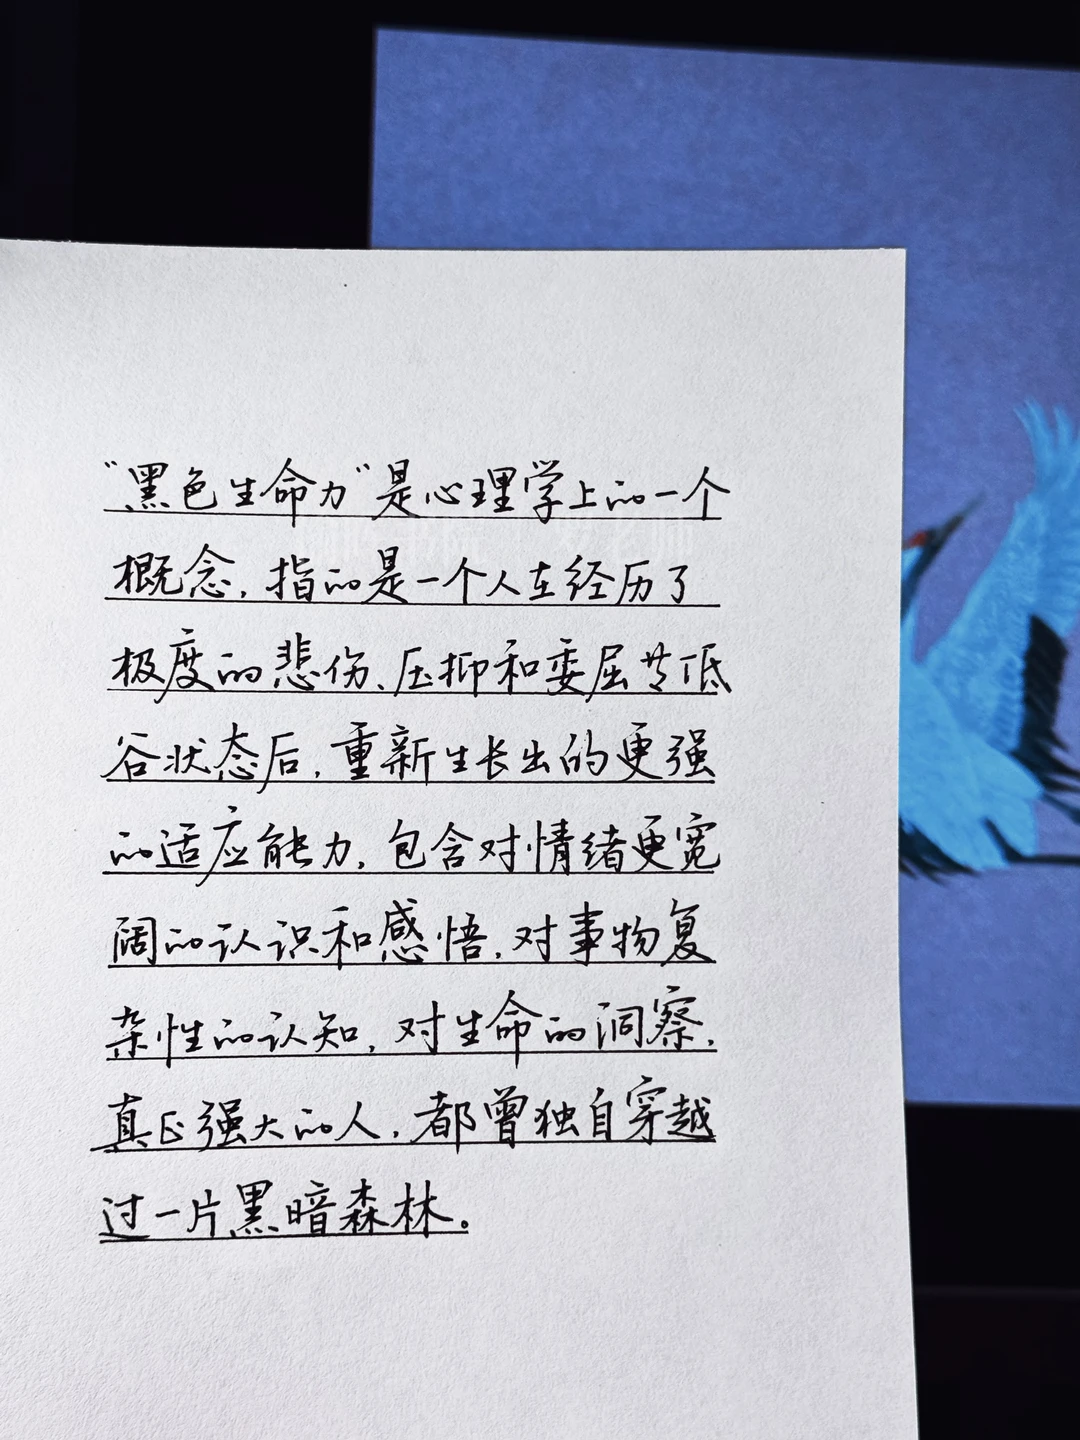 “黑色生命力”是心理学上的一个
概念，指的是一个人在经历了
极度的悲伤、压抑和委屈等低
谷状态后，重新生长出的更强
的适应能力，包含对情绪更宽
阔的认识和感悟，对事物复
杂性的认知，对生命的洞察，
真正强大的人，都曾独自穿越
过一片黑暗森林。